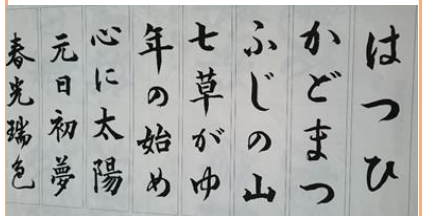 はつひ
かどまつ
ふじの山
七草がゆ
年の始め
心に太陽
元日初夢
春光瑞色